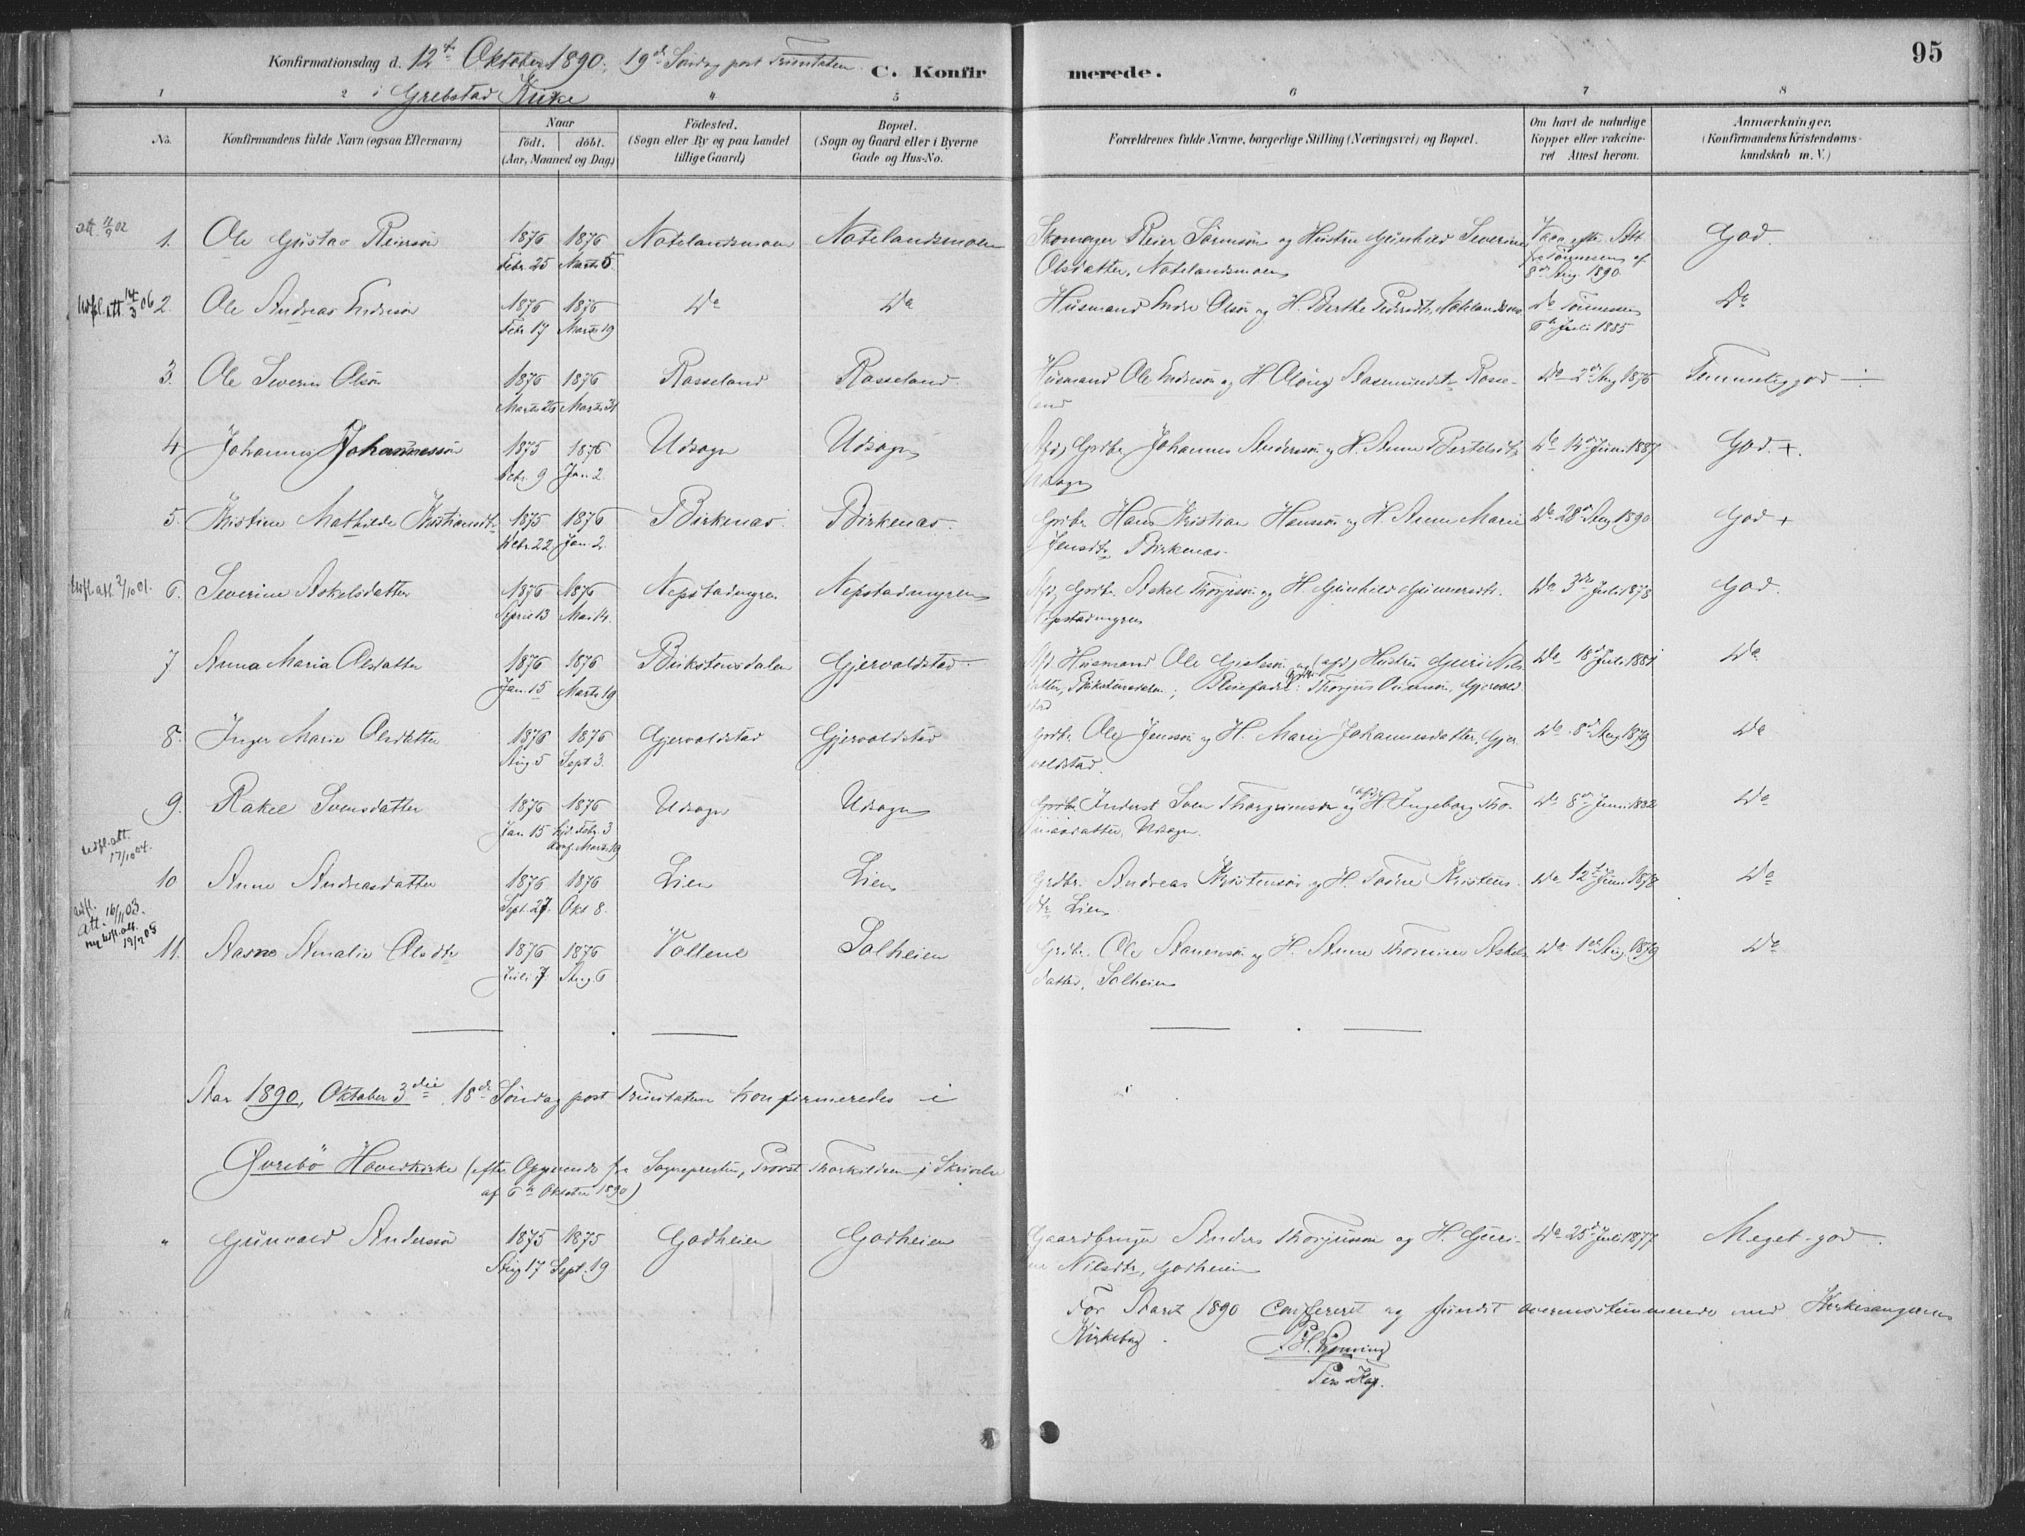 95
Konfirmationsdag d. 12te Oktober 1890. 19de Søndag post Trinitaten
C. Konfirmerede.
i Grebstad Kirke
1 2 4 5 6 7 8
No. Konfirmandens fulde Navn (ogsaa Efternavn) Naar født. døbt. (Aar, Maaned og Dag) Fødested. (Sogn eller By og paa Landet tillige Gaard) Bopæl. (Sogn og Gaard eller i Byerne Gade og Hus-No. Forældrenes fulde Navne, borgerlige Stilling (Næringsvei) og Bopæl. Om havt de naturlige Kopper eller vakcineret Attest herom. Anmærkninger. (Konfirmandens Kristendomskundskab m. V.)
att. 11/9 02
1. Ole Gustav Reiersøn 1876 Febr. 25 1876 Marts 5. Natelandsmoen Natelandsmoen Skomager Reier Sørensøn og Hustru Gunhild Severine Olsdatter, Natelandsmoen Vacc. efter Att. fra Tønnessen af 8de Aug. 1890 God.
Udfl. att. 14/3 06
2. Ole Andreas Endresøn 1876 Febr. 17 1876 Marts 19 Do Do Husmand Endre Olsøn og H. Berthe Pedersdt, Do Tønnessen 6te Juli 1885 Do
3. Ole Severin Olsøn 1876 Marts 25 1876 Marts 31 Rosseland Rosseland. Husmand Ole Endresøn og H. Aasmundsdtr Rosseland Do 2de Aug 1876 Temmelig god
4 Johannes Johannessøn 1875 1876 Jan. 2. Udsogn Udsogn Afd. Grdbr. Johannes Anderssøn og H. Anne Bertelsdtr Udsogn Do 14de Juni 1887 God. +.
5. Kristine Mathilde Kristiansdtr 1875 1876 Jan. 2. Birkenæs. Birkenæs. Grdbr. Hans Kristian Hanssøn og H. Anne Marie Jensdtr Birkenæs. Do 28de Aug 1890. God +
Udfl. att. 2/10 01.
6. Severine Askelsdatter 1876 April 13 1876 Mai 14. Nepstadmyren Nepstadmyren Afd. Grdbr. Askel Thorjusøn og H. Gunhild Gunnersdtr. Nepstadmyren Do 3die Juli 1878 God.
7 Anna Maria Olsdatter 1876 Jan. 15 1876 Marts 19 Birkstensdalen Gjervoldstad. Afd Husmand Ole og (afd) Hustru Guri Nilsdatter, Pleiefader: Grdbr. Thorjus Gjervoldstad Do 18de Juli 1881 Do
8. Inger Marie Olsdatter 1876 Aug. 5 1876 Sept 3. Gjervoldstad Gjervoldstad Grdbr. Ole Jenssøn og H. Marie Johannesdatter, Gjervoldstad. Do 8de Aug 1879 Do
9. Rakel Svensdatter 1876 Jan. 15 1876 hjd. Febr. 3 Konf. Marts 19 Udsogn Udsogn Inderst Sven Thorgrimsøn og (afd) H. Ingeborg Udsogn. Do 8de Juni 1882 Do
Udfl. att. 17/10 04.
10 Anne Andreasdatter 1876 Sept. 27. 1876 Okt 8. Lien Lien Grdbr. Andreas Kristensøn og H. Kristensdtr Lien Do 12te Juni 1878 Do
udfl. att. 16/11 03. ny udfl. att. 19/2 08
11. Aasne Amalie Olsdtr 1876 Juli 7. 1876 Aug 6 Vollene Solheien Grdbr. Ole og H. Anne Thomine Askelsdatter, Solheien Do 1ste Aug. 1879 Do
Aar 1890, Oktober 3die 18de Søndag post Trinitaten konfirmeredes i
Øvrebø Hovedkirke (efter Opgivende fra Sognepresten, Provst Thorkildsen i Skrivelse
af 6te Oktober 1890)
" Gunvald Anderssøn 1875 Aug 17 1875 Sept. 19 Godheien Godheien Gaardbruger Anders Thorjussøn og H. Gurine Nilsdtr, Godheien Do 25de Juli 1877 Meget god.
For Aaret 1890 Confereret og fundet overensstemmende med Kirkesangerens
Kirkebog.